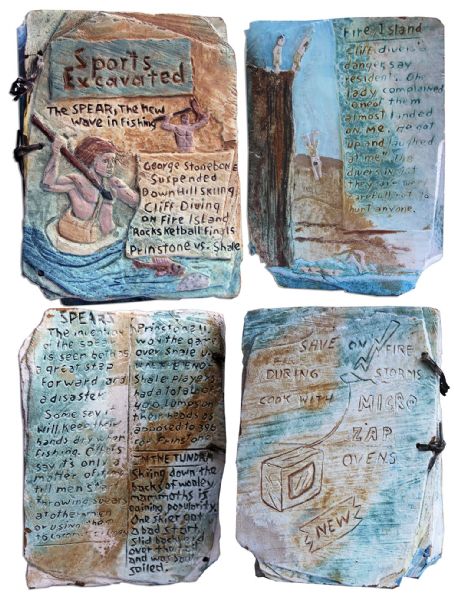 Sports
Excavated
The SPEAR, The New
wave in Fishing
George Stonebone
Suspended
DownHill Skiing
Cliff Diving
on Fire Island
Rocksketball Finals
Prinstone vs. Shale
Fire Island
Cliff divers a
danger, say
resident. One
lady complained
one of them
almost landed
on me. He got
up and laughed
at me! The
divers
they are very
careful not to
hurt anyone.
SPEARS
The invention
of the
is seen
a great step
forward and
a disaster.
Some say it
will keep their
hands dry when
fishing. Others
say it's only a
matter of time
till men start
throwing spears
at other men
or using them
to
Prinstone U
won the game
over Shale U
Shale players
had a total of
400 lumps on
their heads as
opposed to 396
for Prinstone
IN THE TUNDRA
Skiing down the
backs of wooley
mammoths is
gaining popularity.
One skier got
a bad start,
slid backward
over the tail
and was
soiled.
SAVE ON FIRE
DURING STORMS
COOK WITH MICRO
ZAP
OVENS
NEW